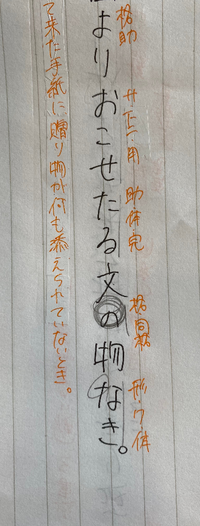 格助 サ下二用 助体完 格同格 形ク体
よりおこせたる文の物なき。
て来た手紙に贈り物が何も添えられていないとき。